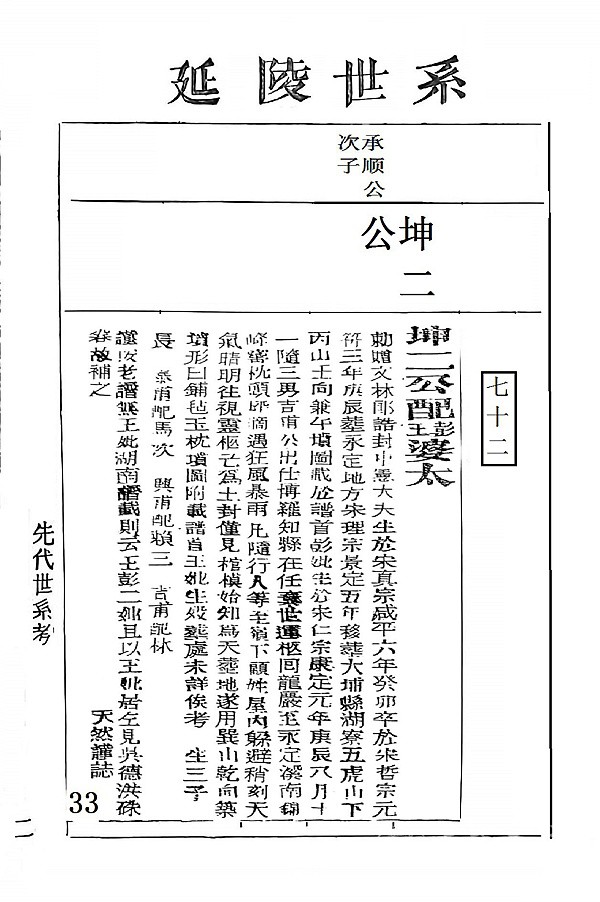 延陵世系
承顺公
次子
坤二
公
七十二
坤二公配彭王婆太
勅贈文林郎誥封中憲大夫生於宋真宗咸平六年癸卯卒於宋哲宗元
符三年庚辰葬永定地方宋理宗景定五年移葬大埔縣湖寮五虎山下
丙山壬向兼午墳圖載於譜首彭妣生於宋仁宗康定元年庚辰八月十
一隨三男吉甫公出仕博羅知縣在任棄世運柩回龍嚴至永定溪南錦
峰窖枕頭即滴遇狂風暴雨凡隨行人等至嶺下頭姓屋內躲避稍刻天
氣晴明往視靈柩亡為土封僅見棺模始知為天葬地遂用巽山乾向築
墳形曰鋪毡玉枕墳圖附載譜首王妣生歿葬處未詳俟考 生三子
長 泰甫配馬次 興甫配賴三 吉甫配林
謹按老譜無王妣湖南譜載則云王彭二妣且以王妣居左見吳德洪硃
卷故補之
天然謹誌
先代世系考
33